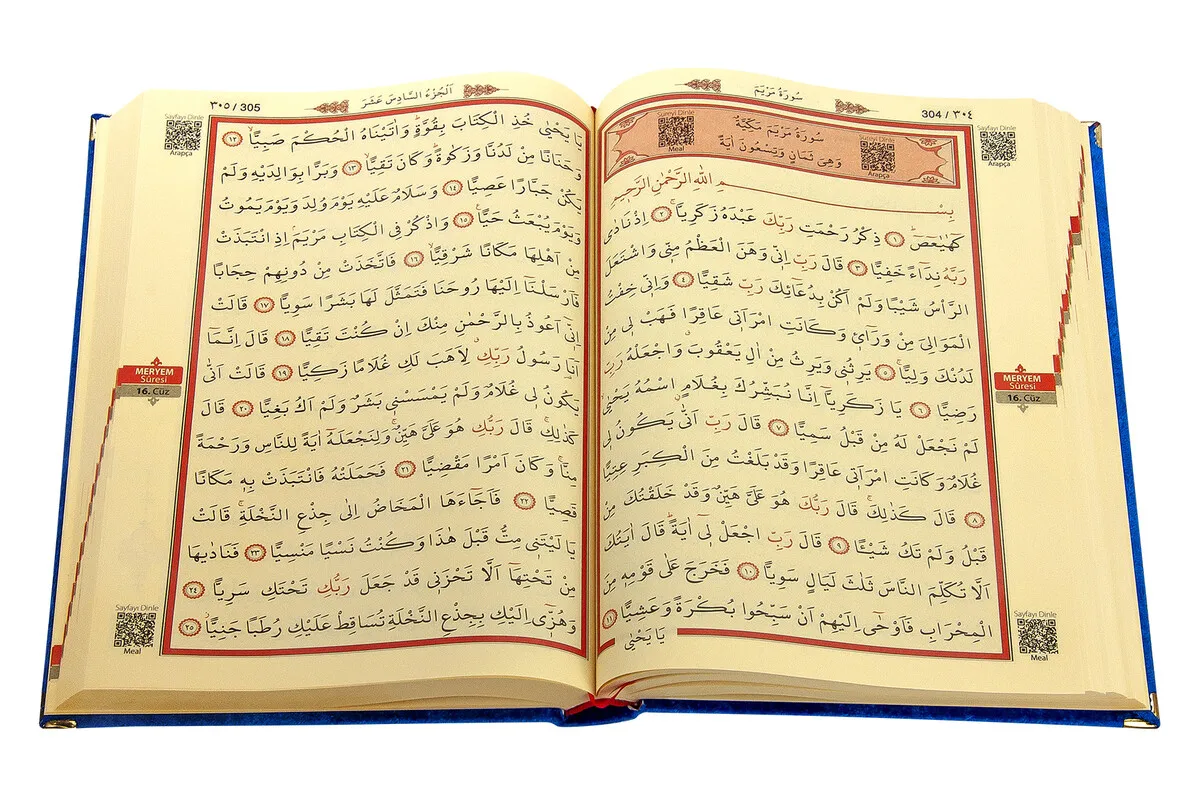 سُورَةُ مَرْيَمَ
304 / ٣٠٤
Sayfayı Dinle
Arapça
Sureyi Dinle
Meal
Sureyi Dinle
Arapça
سُورَةُ مَرْيَمَ مَكِّيَّةٌ
وَهِىَ ثَمَانٍ وَتِسْعُونَ اٰيَةً
بِسْــــمِ اللّٰهِ الرَّحْمٰنِ الرَّحٖيمِ
كٓهٰيٰعٓصٓ ﴿١﴾ ذِكْرُ رَحْمَتِ رَبِّكَ عَبْدَهُ زَكَرِيَّا ﴿٢﴾ اِذْ نَادٰى
رَبَّهُ نِدَٓاءً خَفِيًّا ﴿٣﴾ قَالَ رَبِّ اِنّٖى وَهَنَ الْعَظْمُ مِنّٖى وَاشْتَعَلَ
الرَّأْسُ شَيْبًا وَلَمْ اَكُنْ بِدُعَٓائِكَ رَبِّ شَقِيًّا ﴿٤﴾ وَاِنّٖى خِفْتُ
الْمَوَالِىَ مِنْ وَرَٓاءٖى وَكَانَتِ امْرَاَتٖى عَاقِرًا فَهَبْ لٖى مِنْ
لَدُنْكَ وَلِيًّا ﴿٥﴾ يَرِثُنٖى وَيَرِثُ مِنْ اٰلِ يَعْقُوبَ وَاجْعَلْهُ رَبِّ
رَضِيًّا ﴿٦﴾ يَا زَكَرِيَّٓا اِنَّا نُبَشِّرُكَ بِغُلَامٍ اسْمُهُ يَحْيٰى
لَمْ نَجْعَلْ لَهُ مِنْ قَبْلُ سَمِيًّا ﴿٧﴾ قَالَ رَبِّ اَنّٰى يَكُونُ لٖى
غُلَامٌ وَكَانَتِ امْرَاَتٖى عَاقِرًا وَقَدْ بَلَغْتُ مِنَ الْكِبَرِ عِتِيًّا
﴿٨﴾ قَالَ كَذٰلِكَ قَالَ رَبُّكَ هُوَ عَلَىَّ هَيِّنٌ وَقَدْ خَلَقْتُكَ مِنْ
قَبْلُ وَلَمْ تَكُ شَيْـًٔا ﴿٩﴾ قَالَ رَبِّ اجْعَلْ لٖٓى اٰيَةً قَالَ اٰيَتُكَ
اَلَّا تُكَلِّمَ النَّاسَ ثَلٰثَ لَيَالٍ سَوِيًّا ﴿١٠﴾ فَخَرَجَ عَلٰى قَوْمِهٖ مِنَ
الْمِحْرَابِ فَاَوْحٰٓى اِلَيْهِمْ اَنْ سَبِّحُوا بُكْرَةً وَعَشِيًّا ﴿١١﴾
يَا يَحْيٰى
MERYEM
Sûresi
16. Cüz
Sayfayı Dinle
Meal
اَلْجُزْءُ السَّادِسَ عَشَرَ
٣٠٥ / 305
Sayfayı Dinle
Arapça
يَا يَحْيٰى خُذِ الْكِتَابَ بِقُوَّةٍ وَاٰتَيْنَاهُ الْحُكْمَ صَبِيًّا ﴿١٢﴾
وَحَنَانًا مِنْ لَدُنَّا وَزَكٰوةً وَكَانَ تَقِيًّا ﴿١٣﴾ وَبَرًّا بِوَالِدَيْهِ وَلَمْ
يَكُنْ جَبَّارًا عَصِيًّا ﴿١٤﴾ وَسَلَامٌ عَلَيْهِ يَوْمَ وُلِدَ وَيَوْمَ يَمُوتُ
وَيَوْمَ يُبْعَثُ حَيًّا ﴿١٥﴾ وَاذْكُرْ فِى الْكِتَابِ مَرْيَمَ اِذِ انْتَبَذَتْ
مِنْ اَهْلِهَا مَكَانًا شَرْقِيًّا ﴿١٦﴾ فَاتَّخَذَتْ مِنْ دُونِهِمْ حِجَابًا
فَاَرْسَلْنَٓا اِلَيْهَا رُوحَنَا فَتَمَثَّلَ لَهَا بَشَرًا سَوِيًّا ﴿١٧﴾ قَالَتْ
اِنّٖٓى اَعُوذُ بِالرَّحْمٰنِ مِنْكَ اِنْ كُنْتَ تَقِيًّا ﴿١٨﴾ قَالَ اِنَّمَٓا
اَنَا رَسُولُ رَبِّكِ لِاَهَبَ لَكِ غُلَامًا زَكِيًّا ﴿١٩﴾ قَالَتْ اَنّٰى
يَكُونُ لٖى غُلَامٌ وَلَمْ يَمْسَسْنٖى بَشَرٌ وَلَمْ اَكُ بَغِيًّا ﴿٢٠﴾ قَالَ
كَذٰلِكِ قَالَ رَبُّكِ هُوَ عَلَىَّ هَيِّنٌ وَلِنَجْعَلَهُٓ اٰيَةً لِلنَّاسِ وَرَحْمَةً
مِنَّا وَكَانَ اَمْرًا مَقْضِيًّا ﴿٢١﴾ فَحَمَلَتْهُ فَانْتَبَذَتْ بِهٖ مَكَانًا
قَصِيًّا ﴿٢٢﴾ فَاَجَٓاءَهَا الْمَخَاضُ اِلٰى جِذْعِ النَّخْلَةِ قَالَتْ
يَا لَيْتَنٖى مِتُّ قَبْلَ هٰذَا وَكُنْتُ نَسْيًا مَنْسِيًّا ﴿٢٣﴾ فَنَادٰيهَا
مِنْ تَحْتِهَٓا اَلَّا تَحْزَنٖى قَدْ جَعَلَ رَبُّكِ تَحْتَكِ سَرِيًّا ﴿٢٤﴾
وَهُزّٖٓى اِلَيْكِ بِجِذْعِ النَّخْلَةِ تُسَاقِطْ عَلَيْكِ رُطَبًا جَنِيًّا ﴿٢٥﴾
MERYEM
Sûresi
16. Cüz
Sayfayı Dinle
Meal